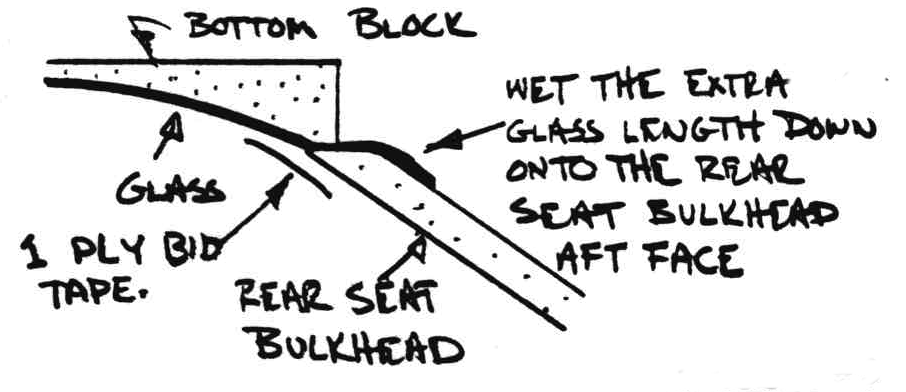 BOTTOM BLOCK
WET THE EXTRA
GLASS LENGTH DOWN
ONTO THE REAR
SEAT BULKHEAD
AFT FACE
GLASS
1 PLY BID
TAPE.
REAR SEAT
BULKHEAD